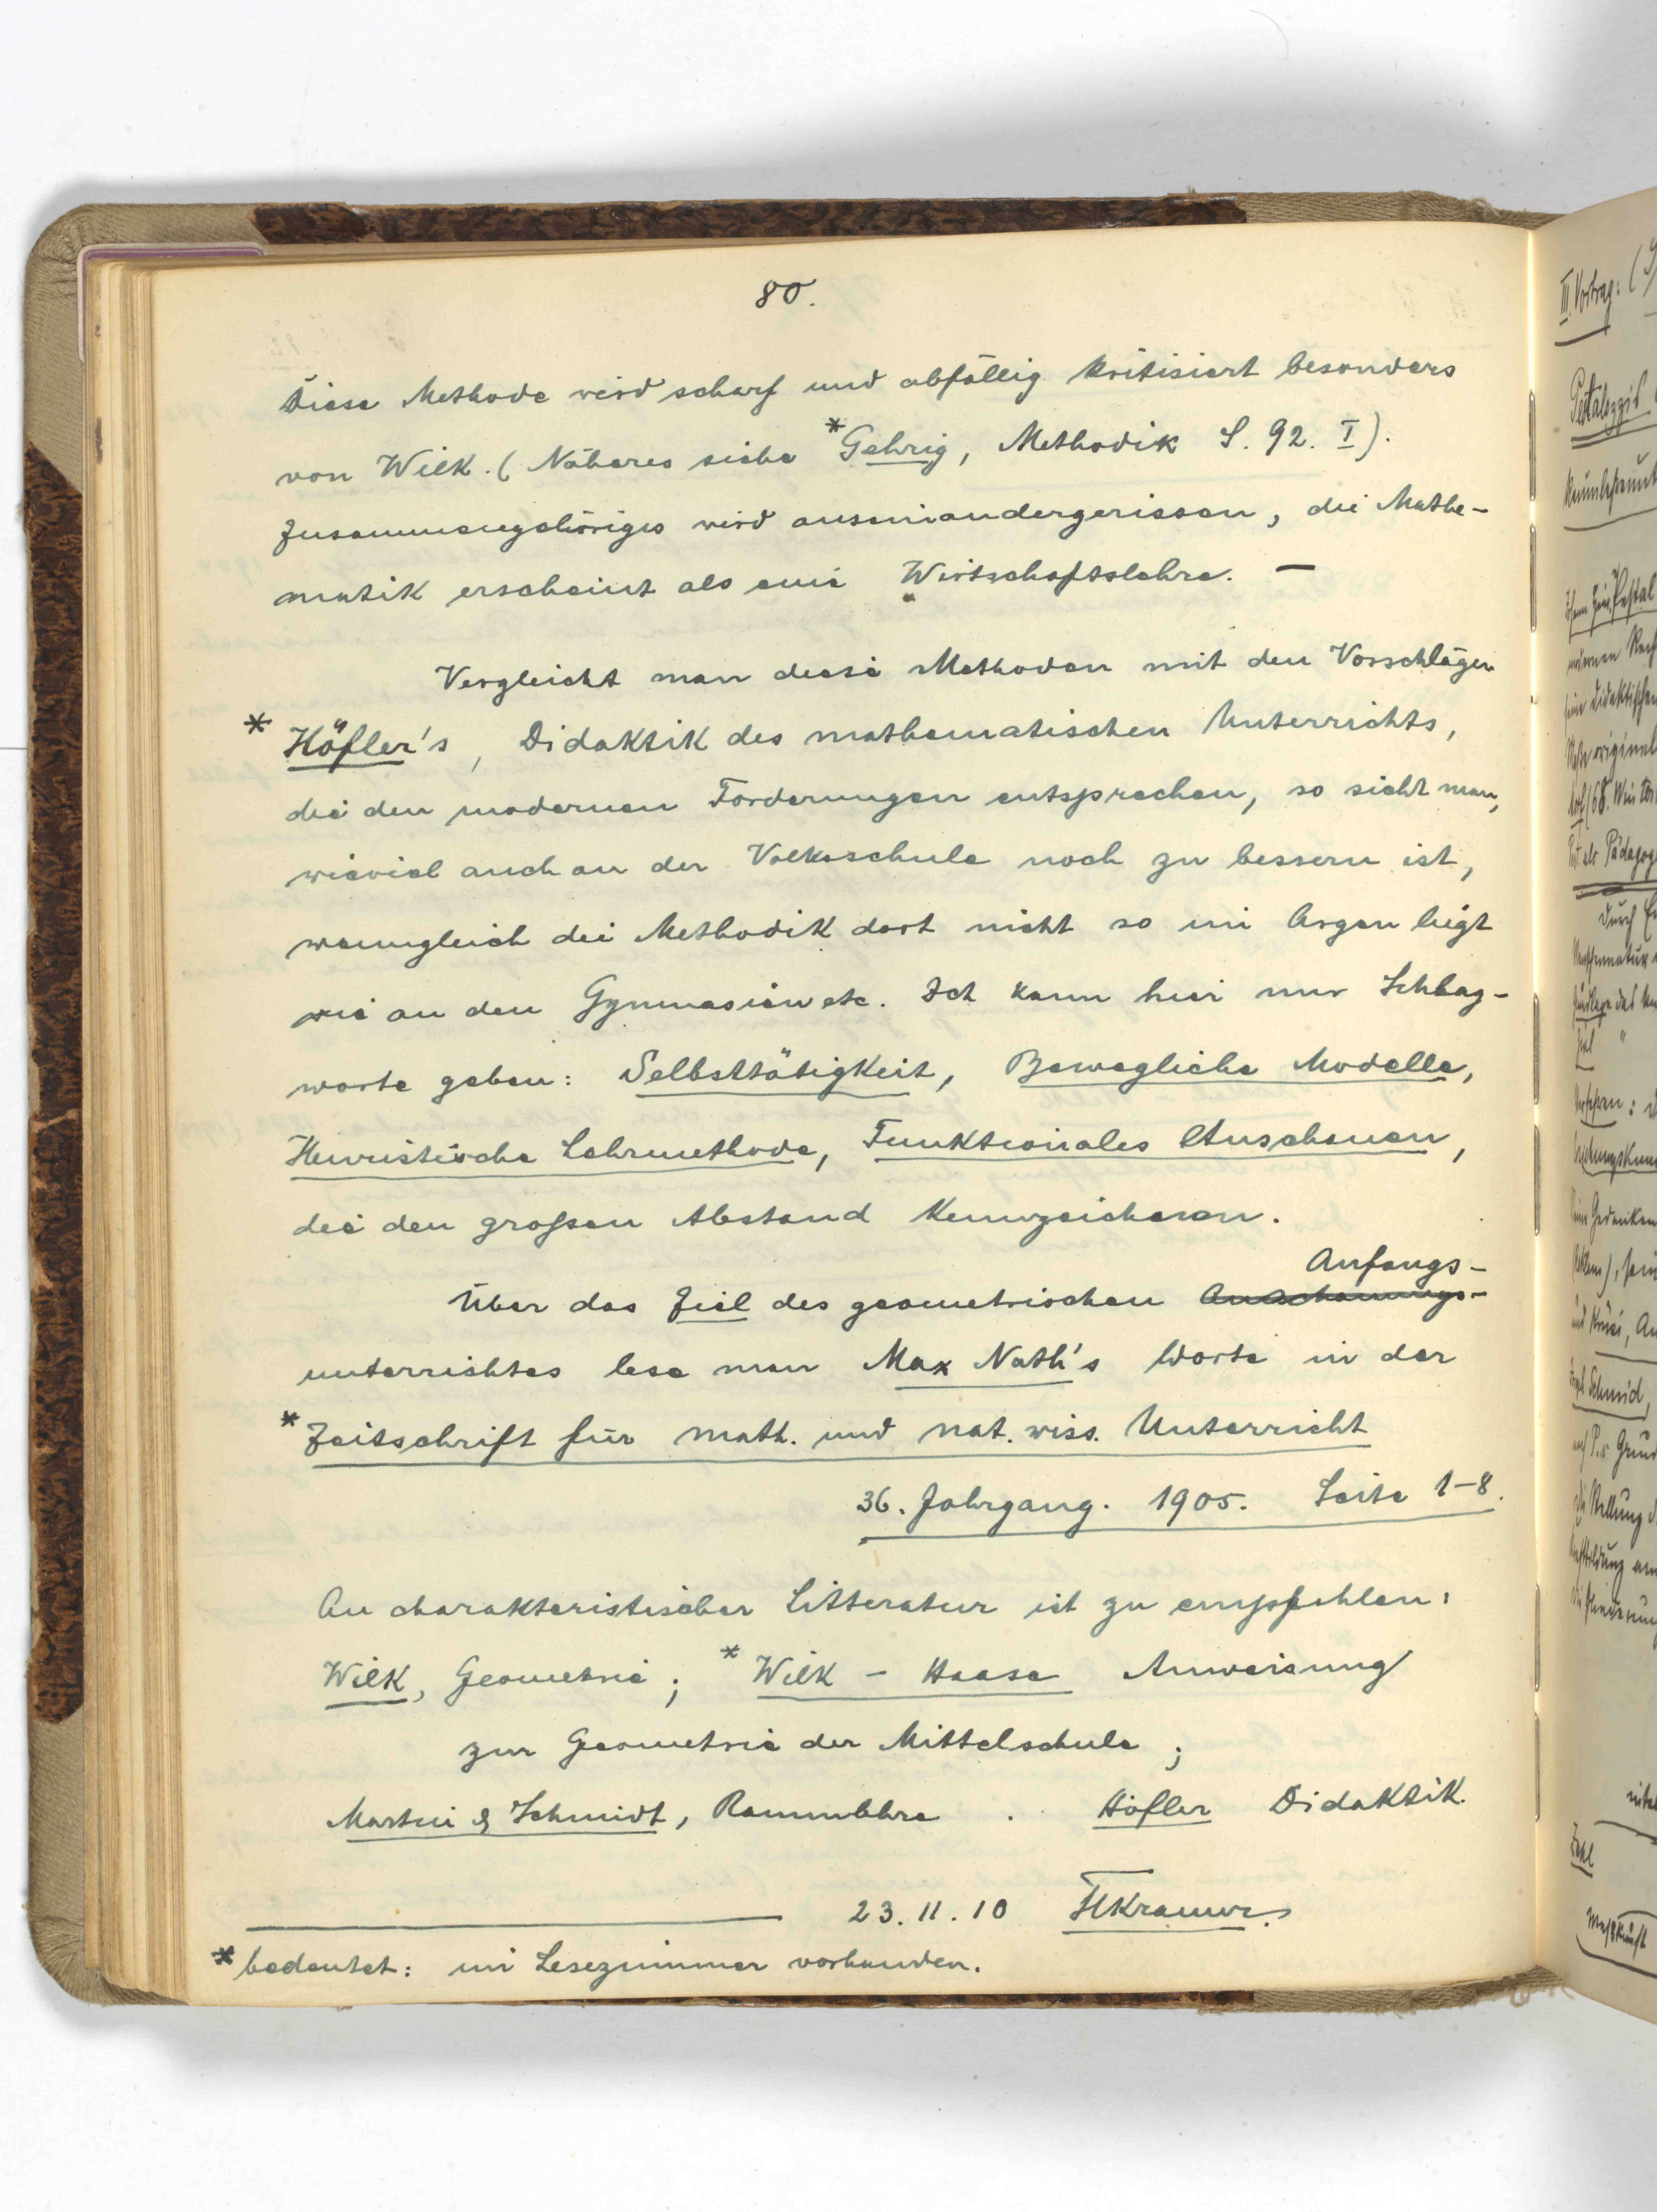 80.
Diese Methode wird scharf und abfällig kritisiert besonders
von Wilk. (Näheres siehe *Gehrig, Methodik S. 92. I).
Zusammengehöriges wird auseinandergerissen, die Mathe-
matik erscheint als eine Wirtschaftslehre. —
Vergleicht man diese Methoden mit den Vorschlägen
* Höfler's, Didaktik des mathematischen Unterrichts,
die den modernen Forderungen entsprechen, so sieht man,
wieviel auch an der Volksschule noch zu bessern ist,
wenngleich die Methodik dort nicht so im Argen liegt
wie an den Gymnasien etc. Ich kann hier nur Schlag-
worte geben: Selbsttätigkeit, Bewegliche Modelle,
Heuristische Lehrmethode, Funktionales Anschauen,
die den großen Abstand kennzeichnen.
Anfangs-
Über das Ziel des geometrischen Anschauungs-
unterrichtes lese man Max Nath's Worte in der
* Zeitschrift für math. und nat. wiss. Unterricht
36. Jahrgang. 1905. Seite 1–8.
An charakteristischer Litteratur ist zu empfehlen:
Wilk, Geometrie; * Wilk – Haase Anweisung
zur Geometrie der Mittelschule;
Martin & Schmidt, Raumlehre . Höfler Didaktik.
23. 11. 10 HKramer.
* bedeutet: im Lesezimmer vorhanden.
III. Vortrag: